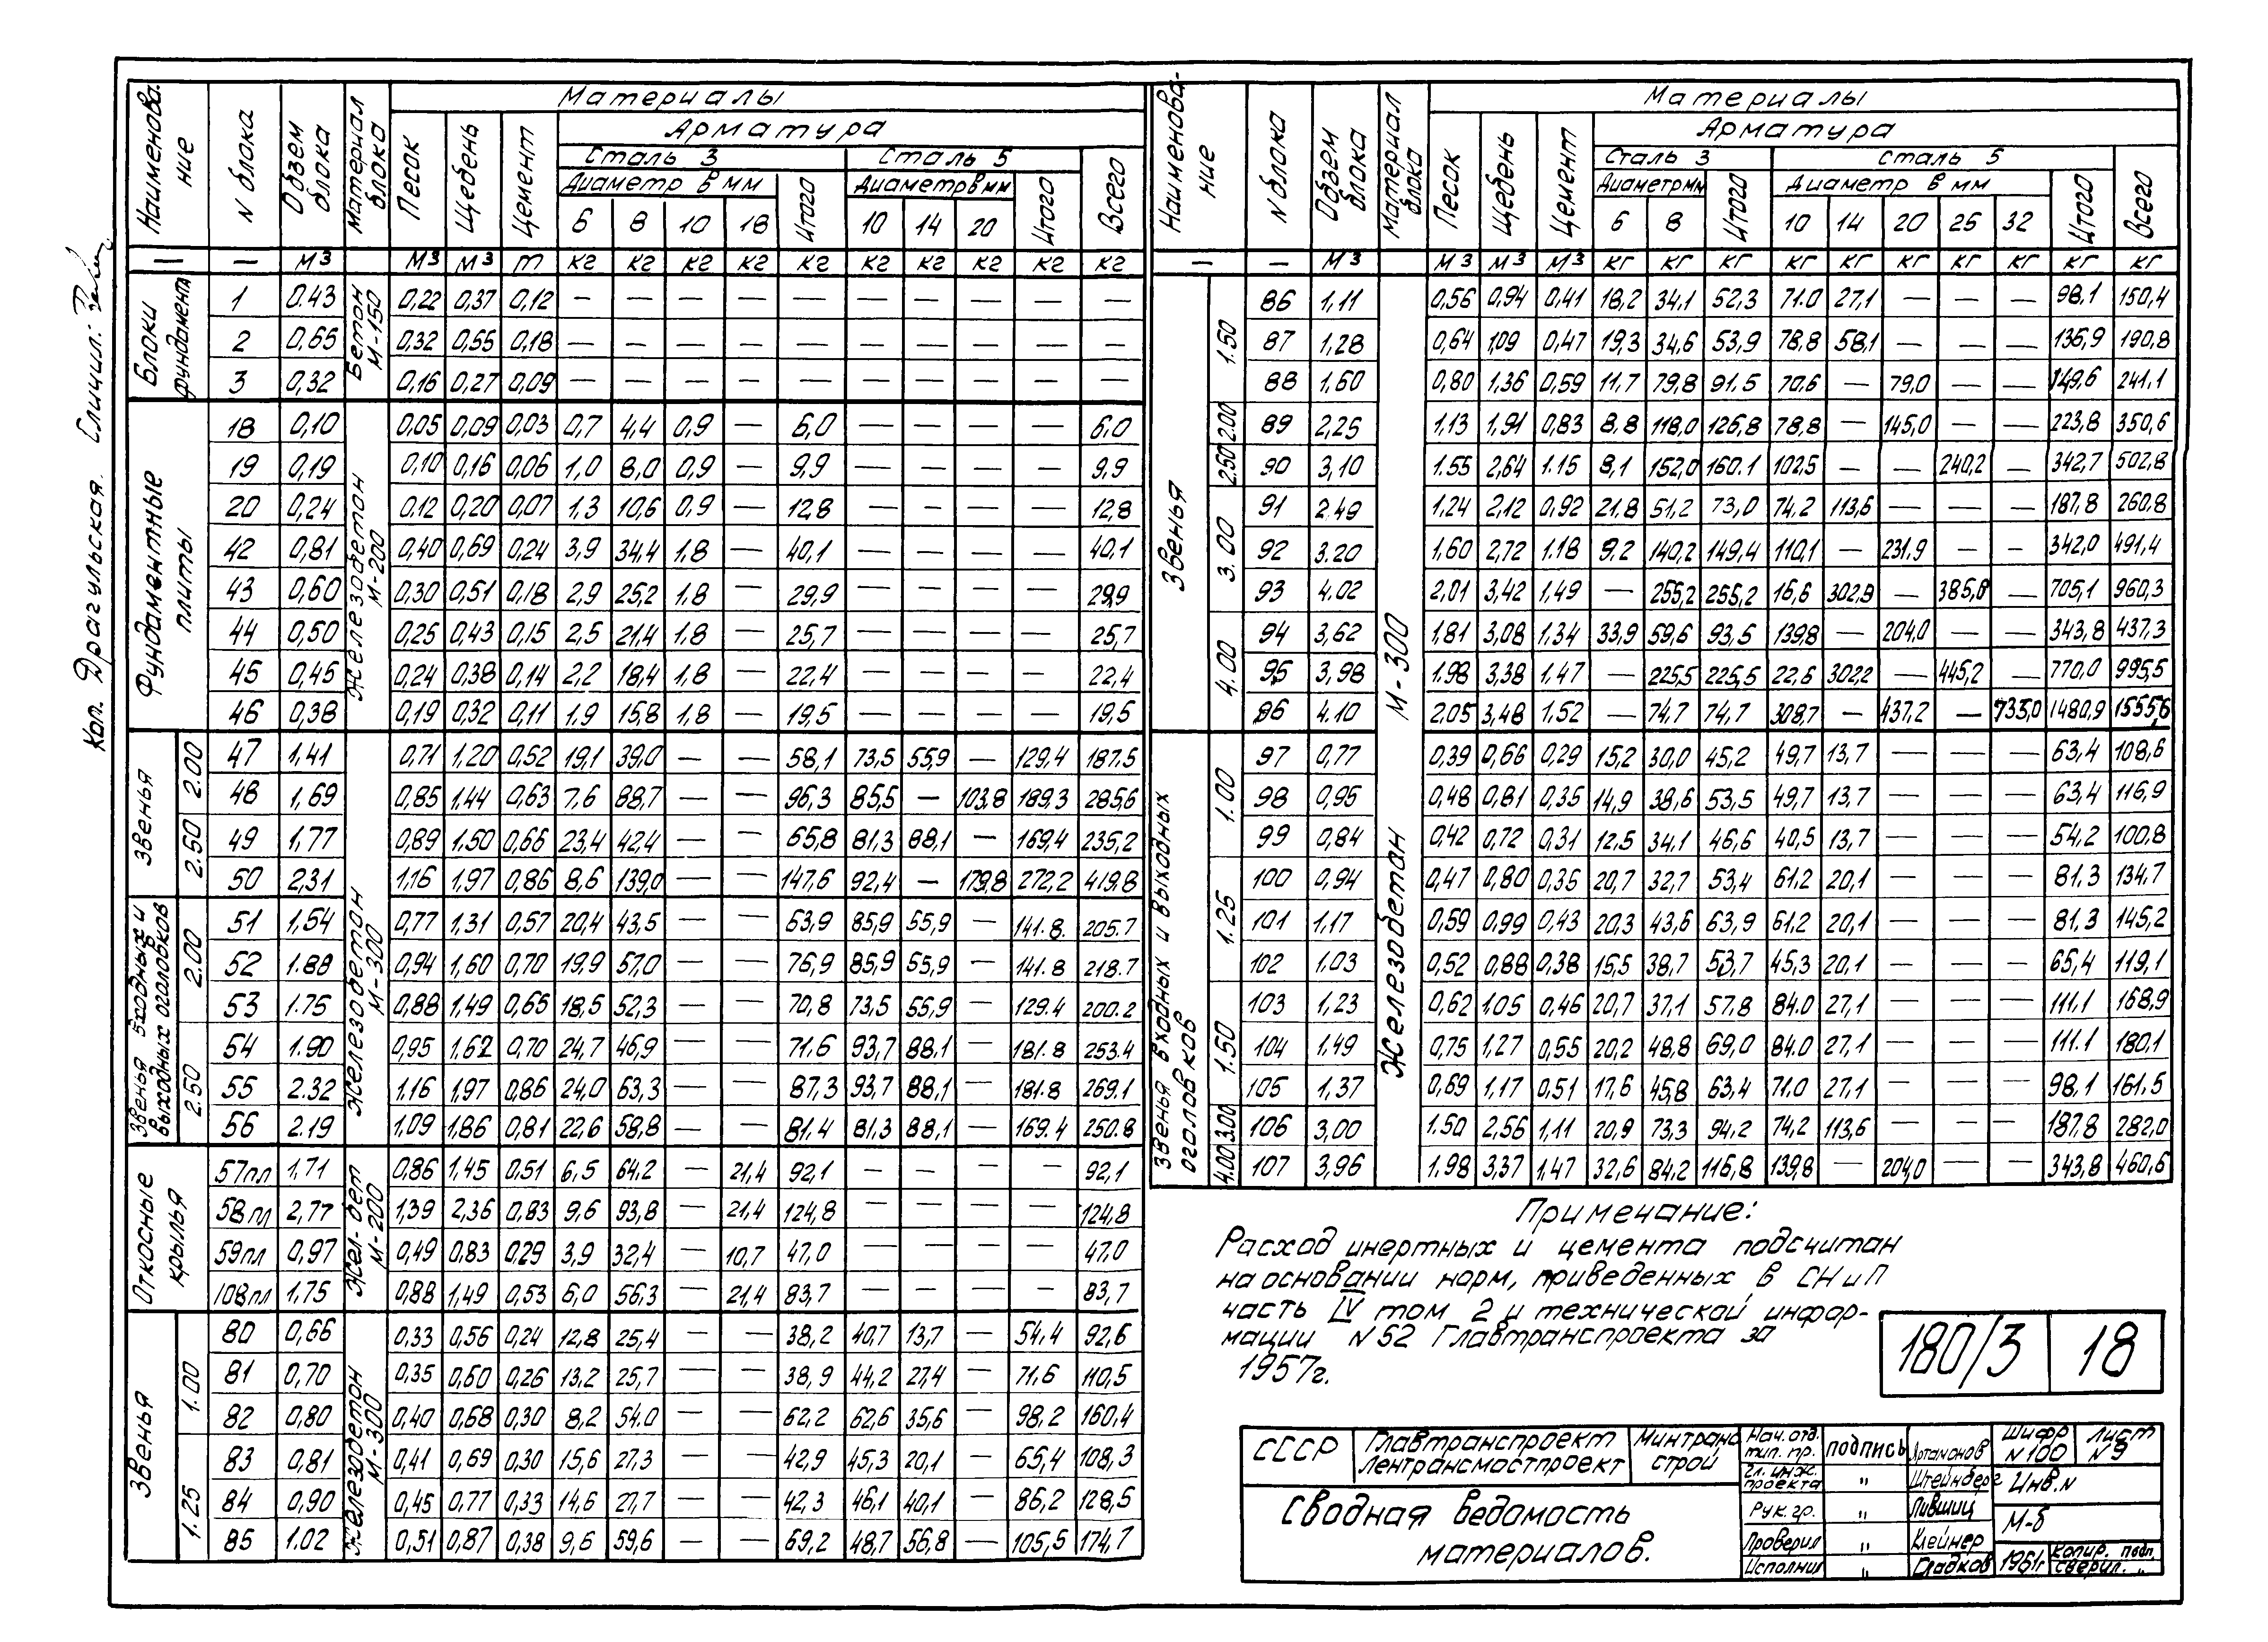 Коп. Драгульская. Сличил:
Наименование | N блока | Объем блока | Материал блока | Материалы
Песок | Щебень | Цемент | Арматура
Сталь 3 | Сталь 5 | Всего
Диаметр в мм | Итого | Диаметр в мм | Итого
6 | 8 | 10 | 18 | 10 | 14 | 20
— | — | м³ | м³ | м³ | т | кг | кг | кг | кг | кг | кг | кг | кг | кг | кг
Блоки фундамента
Бетон М-150
1 | 0.43 | 0,22 | 0,37 | 0,12 | — | — | — | — | — | — | — | — | — | —
2 | 0,65 | 0,32 | 0,55 | 0,18 | — | — | — | — | — | — | — | — | — | —
3 | 0,32 | 0,16 | 0,27 | 0,09 | — | — | — | — | — | — | — | — | — | —
Фундаментные плиты
Железобетон М-200
18 | 0,10 | 0,05 | 0,09 | 0,03 | 0,7 | 4,4 | 0,9 | — | 6,0 | — | — | — | — | 6.0
19 | 0,19 | 0,10 | 0,16 | 0,06 | 1,0 | 8,0 | 0,9 | — | 9,9 | — | — | — | — | 9,9
20 | 0,24 | 0,12 | 0,20 | 0,07 | 1,3 | 10,6 | 0,9 | — | 12,8 | — | — | — | — | 12,8
42 | 0,81 | 0,40 | 0,69 | 0,24 | 3,9 | 34,4 | 1.8 | — | 40,1 | — | — | — | — | 40,1
43 | 0,60 | 0,30 | 0,51 | 0,18 | 2,9 | 25,2 | 1.8 | — | 29,9 | — | — | — | — | 29,9
44 | 0,50 | 0,25 | 0,43 | 0,15 | 2,5 | 21,4 | 1.8 | — | 25,7 | — | — | — | — | 25,7
45 | 0,45 | 0,24 | 0,38 | 0,14 | 2,2 | 18,4 | 1.8 | — | 22,4 | — | — | — | — | 22,4
46 | 0,38 | 0,19 | 0,32 | 0,11 | 1,9 | 15,8 | 1,8 | — | 19,5 | — | — | — | — | 19,5
Звенья 2.00 2.50
Железобетон М-300
47 | 1,41 | 0,71 | 1,20 | 0,52 | 19,1 | 39,0 | — | — | 58,1 | 73,5 | 55,9 | — | 129,4 | 187.5
48 | 1,69 | 0,85 | 1,44 | 0,63 | 7,6 | 88,7 | — | — | 96,3 | 85,5 | — | 103,8 | 189,3 | 285,6
49 | 1,77 | 0,89 | 1.50 | 0,66 | 23,4 | 42,4 | — | — | 65,8 | 81,3 | 88,1 | — | 169,4 | 235,2
50 | 2,31 | 1,16 | 1,97 | 0,86 | 8,6 | 139,0 | — | — | 147,6 | 92,4 | — | 179,8 | 272,2 | 419.8
Звенья входных и выходных оголовков 2.00 2.50
51 | 1,54 | 0,77 | 1,31 | 0,57 | 20,4 | 43,5 | — | — | 63,9 | 85,9 | 55,9 | — | 141.8. | 205.7
52 | 1.88 | 0,94 | 1,60 | 0,70 | 19,9 | 57,0 | — | — | 76,9 | 85,9 | 55,9 | — | 141.8 | 218.7
53 | 1.75 | 0,88 | 1,49 | 0,65 | 18,5 | 52,3 | — | — | 70,8 | 73,5 | 55,9 | — | 129.4 | 200.2
54 | 1.90 | 0,95 | 1,62 | 0,70 | 24,7 | 46,9 | — | — | 71,6 | 93,7 | 88,1 | — | 181.8 | 253.4
55 | 2.32 | 1,16 | 1,97 | 0,86 | 24,0 | 63,3 | — | — | 87,3 | 93,7 | 88,1 | — | 181.8 | 269.1
56 | 2.19 | 1,09 | 1,86 | 0,81 | 22,6 | 58,8 | — | — | 81.4 | 81,3 | 88,1 | — | 169.4 | 250.8
Откосные крылья
Жел-бет М-200
57пл | 1,71 | 0,86 | 1,45 | 0,51 | 6,5 | 64,2 | — | 21,4 | 92,1 | — | — | — | — | 92,1
58пл | 2,77 | 1,39 | 2,36 | 0,83 | 9,6 | 93,8 | — | 21,4 | 124,8 | — | — | — | — | 124,8
59пл | 0,97 | 0,49 | 0,83 | 0,29 | 3,9 | 32,4 | — | 10,7 | 47,0 | — | — | — | — | 47,0
108пл | 1,75 | 0,88 | 1,49 | 0,53 | 6,0 | 56,3 | — | 21,4 | 83,7 | — | — | — | — | 83,7
Звенья 1.00 1.25
Железобетон М-300
80 | 0,66 | 0,33 | 0,56 | 0,24 | 12,8 | 25,4 | — | — | 38,2 | 40,7 | 13,7 | — | 54,4 | 92,6
81 | 0,70 | 0,35 | 0,60 | 0,26 | 13,2 | 25,7 | — | — | 38,9 | 44,2 | 27,4 | — | 71,6 | 110,5
82 | 0,80 | 0,40 | 0,68 | 0,30 | 8,2 | 54.0 | — | — | 62,2 | 62,6 | 35,6 | — | 98,2 | 160,4
83 | 0,81 | 0,41 | 0,69 | 0,30 | 15,6 | 27,3 | — | — | 42,9 | 45,3 | 20,1 | — | 65,4 | 108,3
84 | 0,90 | 0,45 | 0,77 | 0,33 | 14,6 | 27,7 | — | — | 42,3 | 46,1 | 40,1 | — | 86,2 | 128,5
85 | 1.02 | 0,51 | 0,87 | 0,38 | 9,6 | 59,6 | — | — | 69,2 | 48,7 | 56,8 | — | 105,5 | 174,7
Наименование | N блока | Объем блока | Материал блока | Материалы
Песок | Щебень | Цемент | Арматура
Сталь 3 | Сталь 5 | Всего
Диаметр мм | Итого | Диаметр в мм | Итого
6 | 8 | 10 | 14 | 20 | 25 | 32
— | — | м³ | м³ | м³ | м³ | кг | кг | кг | кг | кг | кг | кг | кг | кг | кг
Звенья 1.50 2.00 2.50 3.00 4.00
Железобетон М-300
86 | 1,11 | 0,56 | 0,94 | 0,41 | 18,2 | 34,1 | 52,3 | 71.0 | 27,1 | — | — | — | 98,1 | 150,4
87 | 1,28 | 0,64 | 1,09 | 0,47 | 19,3 | 34,6 | 53,9 | 78,8 | 58,1 | — | — | — | 136,9 | 190,8
88 | 1,60 | 0,80 | 1,36 | 0,59 | 11.7 | 79,8 | 91.5 | 70,6 | — | 79,0 | — | — | 149,6 | 241,1
89 | 2,25 | 1,13 | 1,91 | 0,83 | 8,8 | 118,0 | 126,8 | 78,8 | — | 145,0 | — | — | 223,8 | 350,6
90 | 3,10 | 1.55 | 2,64 | 1.15 | 8,1 | 152,0 | 160.1 | 102,5 | — | — | 240,2 | — | 342,7 | 502,8
91 | 2.49 | 1.24 | 2,12 | 0,92 | 21.8 | 51,2 | 73,0 | 74,2 | 113,6 | — | — | — | 187,8 | 260,8
92 | 3.20 | 1,60 | 2,72 | 1.18 | 9,2 | 140,2 | 149,4 | 110,1 | — | 231.9 | — | — | 342,0 | 491,4
93 | 4.02 | 2,01 | 3,42 | 1,49 | — | 255,2 | 255,2 | 16,6 | 302,9 | — | 385,6 | — | 705,1 | 960,3
94 | 3,62 | 1.81 | 3,08 | 1.34 | 33,9 | 59,6 | 93,5 | 139,8 | — | 204,0 | — | — | 343,8 | 437,3
95 | 3,98 | 1.98 | 3,38 | 1,47 | — | 225,5 | 225,5 | 22,6 | 302,2 | — | 445,2 | — | 770,0 | 995,5
96 | 4.10 | 2,05 | 3,48 | 1,52 | — | 74,7 | 74,7 | 308,7 | — | 437,2 | — | 735,0 | 1480,9 | 1555,6
Звенья входных и выходных оголовков 1.00 1.25 1.50 3.00 4.00
97 | 0,77 | 0,39 | 0,66 | 0,29 | 15,2 | 30,0 | 45,2 | 49,7 | 13,7 | — | — | — | 63,4 | 108,6
98 | 0,95 | 0,48 | 0,81 | 0,35 | 14,9 | 38,6 | 53,5 | 49,7 | 13,7 | — | — | — | 63,4 | 116,9
99 | 0,84 | 0,42 | 0,72 | 0,31 | 12,5 | 34,1 | 46,6 | 40,5 | 13,7 | — | — | — | 54,2 | 100,8
100 | 0,94 | 0,47 | 0,80 | 0,35 | 20,7 | 32,7 | 53,4 | 61,2 | 20,1 | — | — | — | 81.3 | 134,7
101 | 1,17 | 0,59 | 0,99 | 0,43 | 20,3 | 43,6 | 63,9 | 61,2 | 20,1 | — | — | — | 81,3 | 145,2
102 | 1.03 | 0,52 | 0,88 | 0,38 | 15,5 | 38,7 | 53,7 | 45,3 | 20,1 | — | — | — | 65,4 | 119,1
103 | 1,23 | 0,62 | 1.05 | 0,46 | 20,7 | 37,1 | 57,8 | 84.0 | 27,1 | — | — | — | 111,1 | 168,9
104 | 1.49 | 0,75 | 1,27 | 0,55 | 20,2 | 48,8 | 69,0 | 84,0 | 27,1 | — | — | — | 111.1 | 180,1
105 | 1,37 | 0,69 | 1,17 | 0,51 | 17,6 | 45,8 | 63,4 | 71.0 | 27,1 | — | — | — | 98,1 | 161,5
106 | 3,00 | 1.50 | 2,56 | 1,11 | 20,9 | 73,3 | 94,2 | 74,2 | 113,6 | — | — | — | 187,8 | 282,0
107 | 3,96 | 1.98 | 3,37 | 1,47 | 32,6 | 84,2 | 116,8 | 139,8 | — | 204,0 | — | — | 343,8 | 460,6
Примечание:
Расход инертных и цемента подсчитан
на основании норм, приведенных в СНиП
часть IV том 2 и технической инфор-
мации N 52 Главтранспроекта за
1957г.
180/3 | 18
СССР | Главтранспроект Лентрансмостпроект | Минтрансстрой
Сводная ведомость
материалов.
Нач. отд. тип. пр. | подпись | Артамонов | Шифр N 100 | Лист N 9
Гл. инж. проекта | " | Штейнберг | Инв. N
Рук. гр. | " | Лившиц | М-б
Проверил | " | Клейнер
Исполнил | " | Гладков | 1961г | Копир. подп. Сверил. "